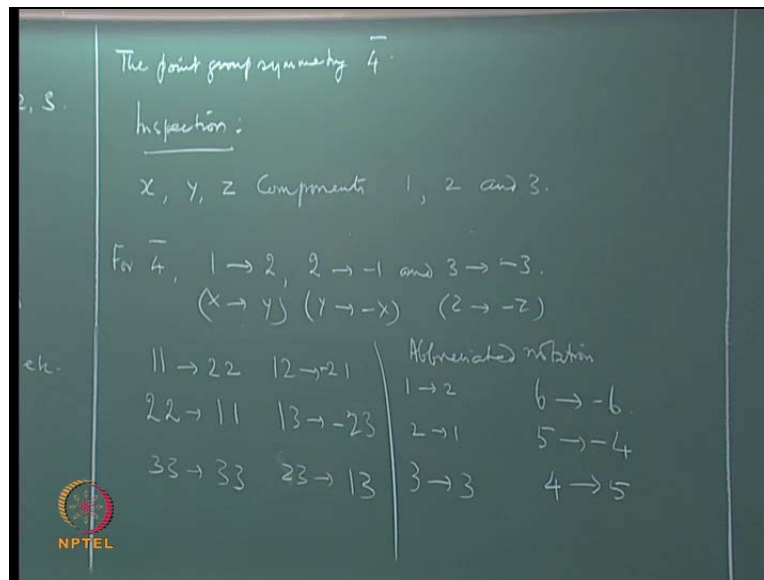 2, 3.
etc.
The point group symmetry 4̅.
Inspection:
X, Y, Z Components 1, 2 and 3.
For 4̅, 1 → 2, 2 → -1 and 3 → -3.
(X → Y) (Y → -X) (Z → -Z)
11 → 22 12 → -21
22 → 11 13 → -23
33 → 33 23 → 13
Abbreviated notation
1 → 2 6 → -6.
2 → 1 5 → -4
3 → 3 4 → 5
NPTEL